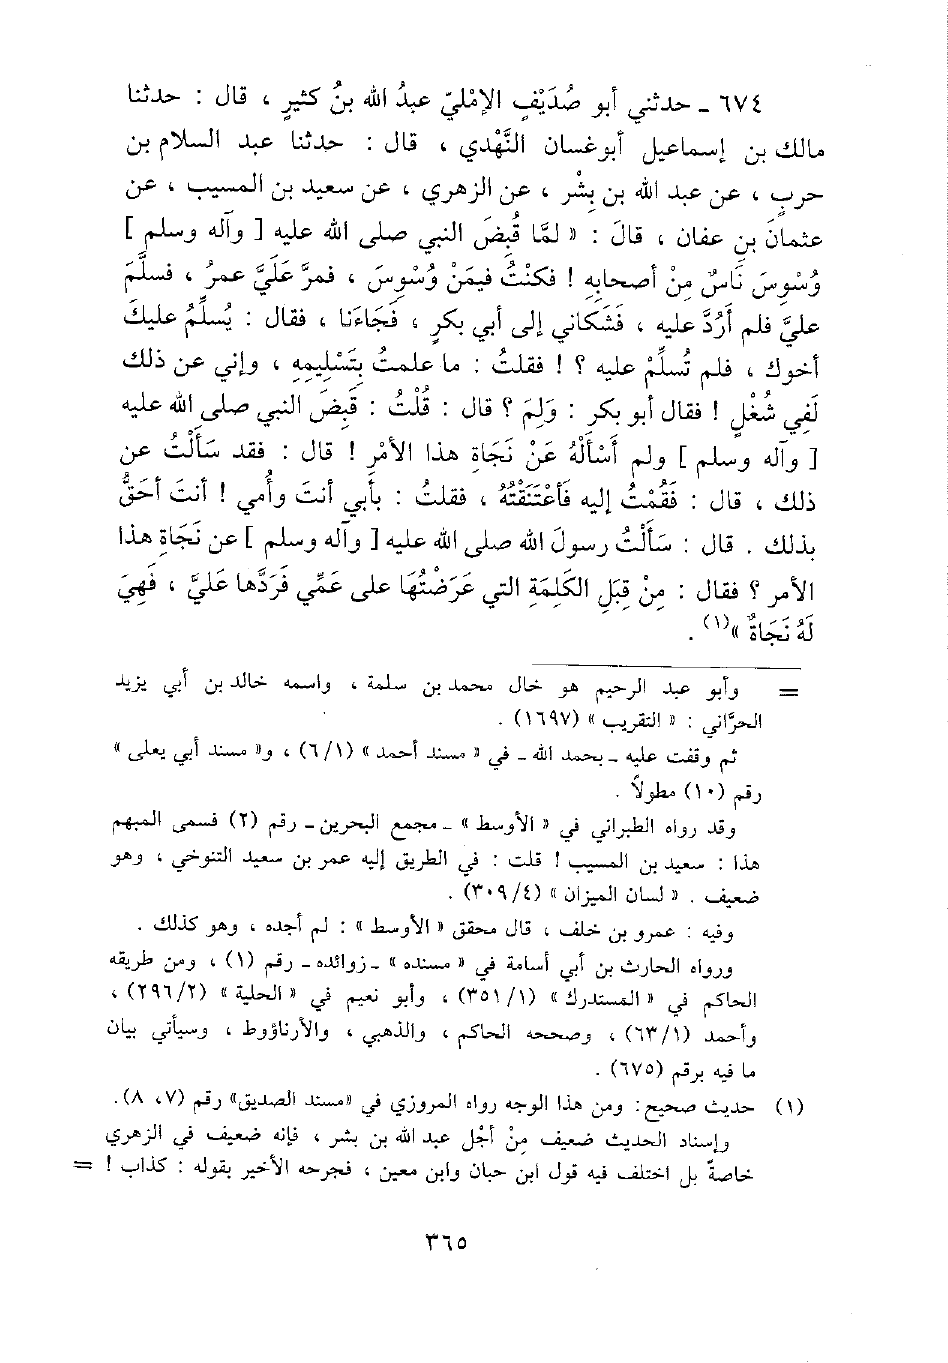 ٦٧٤ ـ حدثني أبو صُدَيْفٍ الإمْليّ عبدُ الله بنُ كثيرٍ ، قال : حدثنا
مالك بن إسماعيل أبوغسان النَّهْدي ، قال : حدثنا عبد السلام بن
حربٍ ، عن عبد الله بن بِشْر ، عن الزهري ، عن سعيد بن المسيب ، عن
عثمانَ بن عفان ، قالَ : « لمَّا قُبِضَ النبي صلى الله عليه [ وآله وسلم ]
وُسْوِسَ نَاسٌ مِنْ أصحابِهِ ! فكنْتُ فيمَنْ وُسْوِسَ ، فمرَّ عَلَيَّ عمرُ ، فسلَّمَ
عليَّ فلم أرُدَّ عليه ، فَشَكاني إلى أبي بكرٍ ، فَجَاءَنا ، فقال : يُسلِّمُ عليكَ
أخوك ، فلم تُسلِّمْ عليه ؟ ! فقلتُ : ما علمتُ بِتَسْلِيمِهِ ، وإني عن ذلك
لَفِي شُغْلٍ ! فقال أبو بكر : وَلِمَ ؟ قال : قُلْتُ : قُبِضَ النبي صلى الله عليه
[ وآله وسلم ] ولم أسْألْهُ عَنْ نَجَاةِ هذا الأمْرِ ! قال : فقد سَألْتُ عن
ذلك ، قال : فَقُمْتُ إليه فَأعْتَنَقْتُهُ ، فقلتُ : بأبي أنتَ وأُمي ! أنتَ أحَقُّ
بذلك . قال : سَألْتُ رسولَ الله صلى الله عليه [ وآله وسلم ] عن نَجَاةِ هذا
الأمر ؟ فقال : مِنْ قِبَلِ الكَلِمَةِ التي عَرَضْتُهَا على عَمِّي فَرَدَّها عَليَّ ، فَهِيَ
لَهُ نَجَاةٌ »(١) .
= وأبو عبد الرحيم هو خال محمد بن سلمة ، واسمه خالد بن أبي يزيد
الحرَّاني : « التقريب » (١٦٩٧) .
ثم وقفت عليه ـ بحمد الله ـ في « مسند أحمد » (٦/١) ، و« مسند أبي يعلى »
رقم (١٠) مطولاً .
وقد رواه الطبراني في « الأوسط » ـ مجمع البحرين ـ رقم (٢) فسمى المبهم
هذا : سعيد بن المسيب ! قلت : في الطريق إليه عمر بن سعيد التنوخي ، وهو
ضعيف . « لسان الميزان » (٣٠٩/٤) .
وفيه : عمرو بن خلف ، قال محقق « الأوسط » : لم أجده ، وهو كذلك .
ورواه الحارث بن أبي أسامة في « مسنده » ـ زوائده ـ رقم (١) ، ومن طريقه
الحاكم في « المستدرك » (٣٥١/١) ، وأبو نعيم في « الحلية » (٢٩٦/٢) ،
وأحمد (٦٣/١) ، وصححه الحاكم ، والذهبي ، والأرناؤوط ، وسيأتي بيان
ما فيه برقم (٦٧٥) .
(١) حديث صحيح : ومن هذا الوجه رواه المروزي في «مسند الصديق» رقم (٧، ٨).
وإسناد الحديث ضعيف مِنْ أجْل عبد الله بن بشر ، فإنه ضعيف في الزهري
خاصةً بل اختلف فيه قول ابن حبان وابن معين ، فجرحه الأخير بقوله : كذاب ! =
٣٦٥